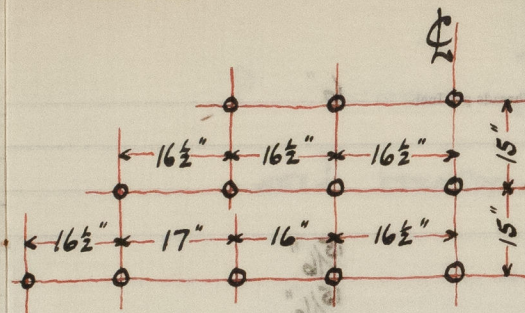 ℄
16½" 16½" 16½"
15"
16½" 17" 16" 16½"
15"